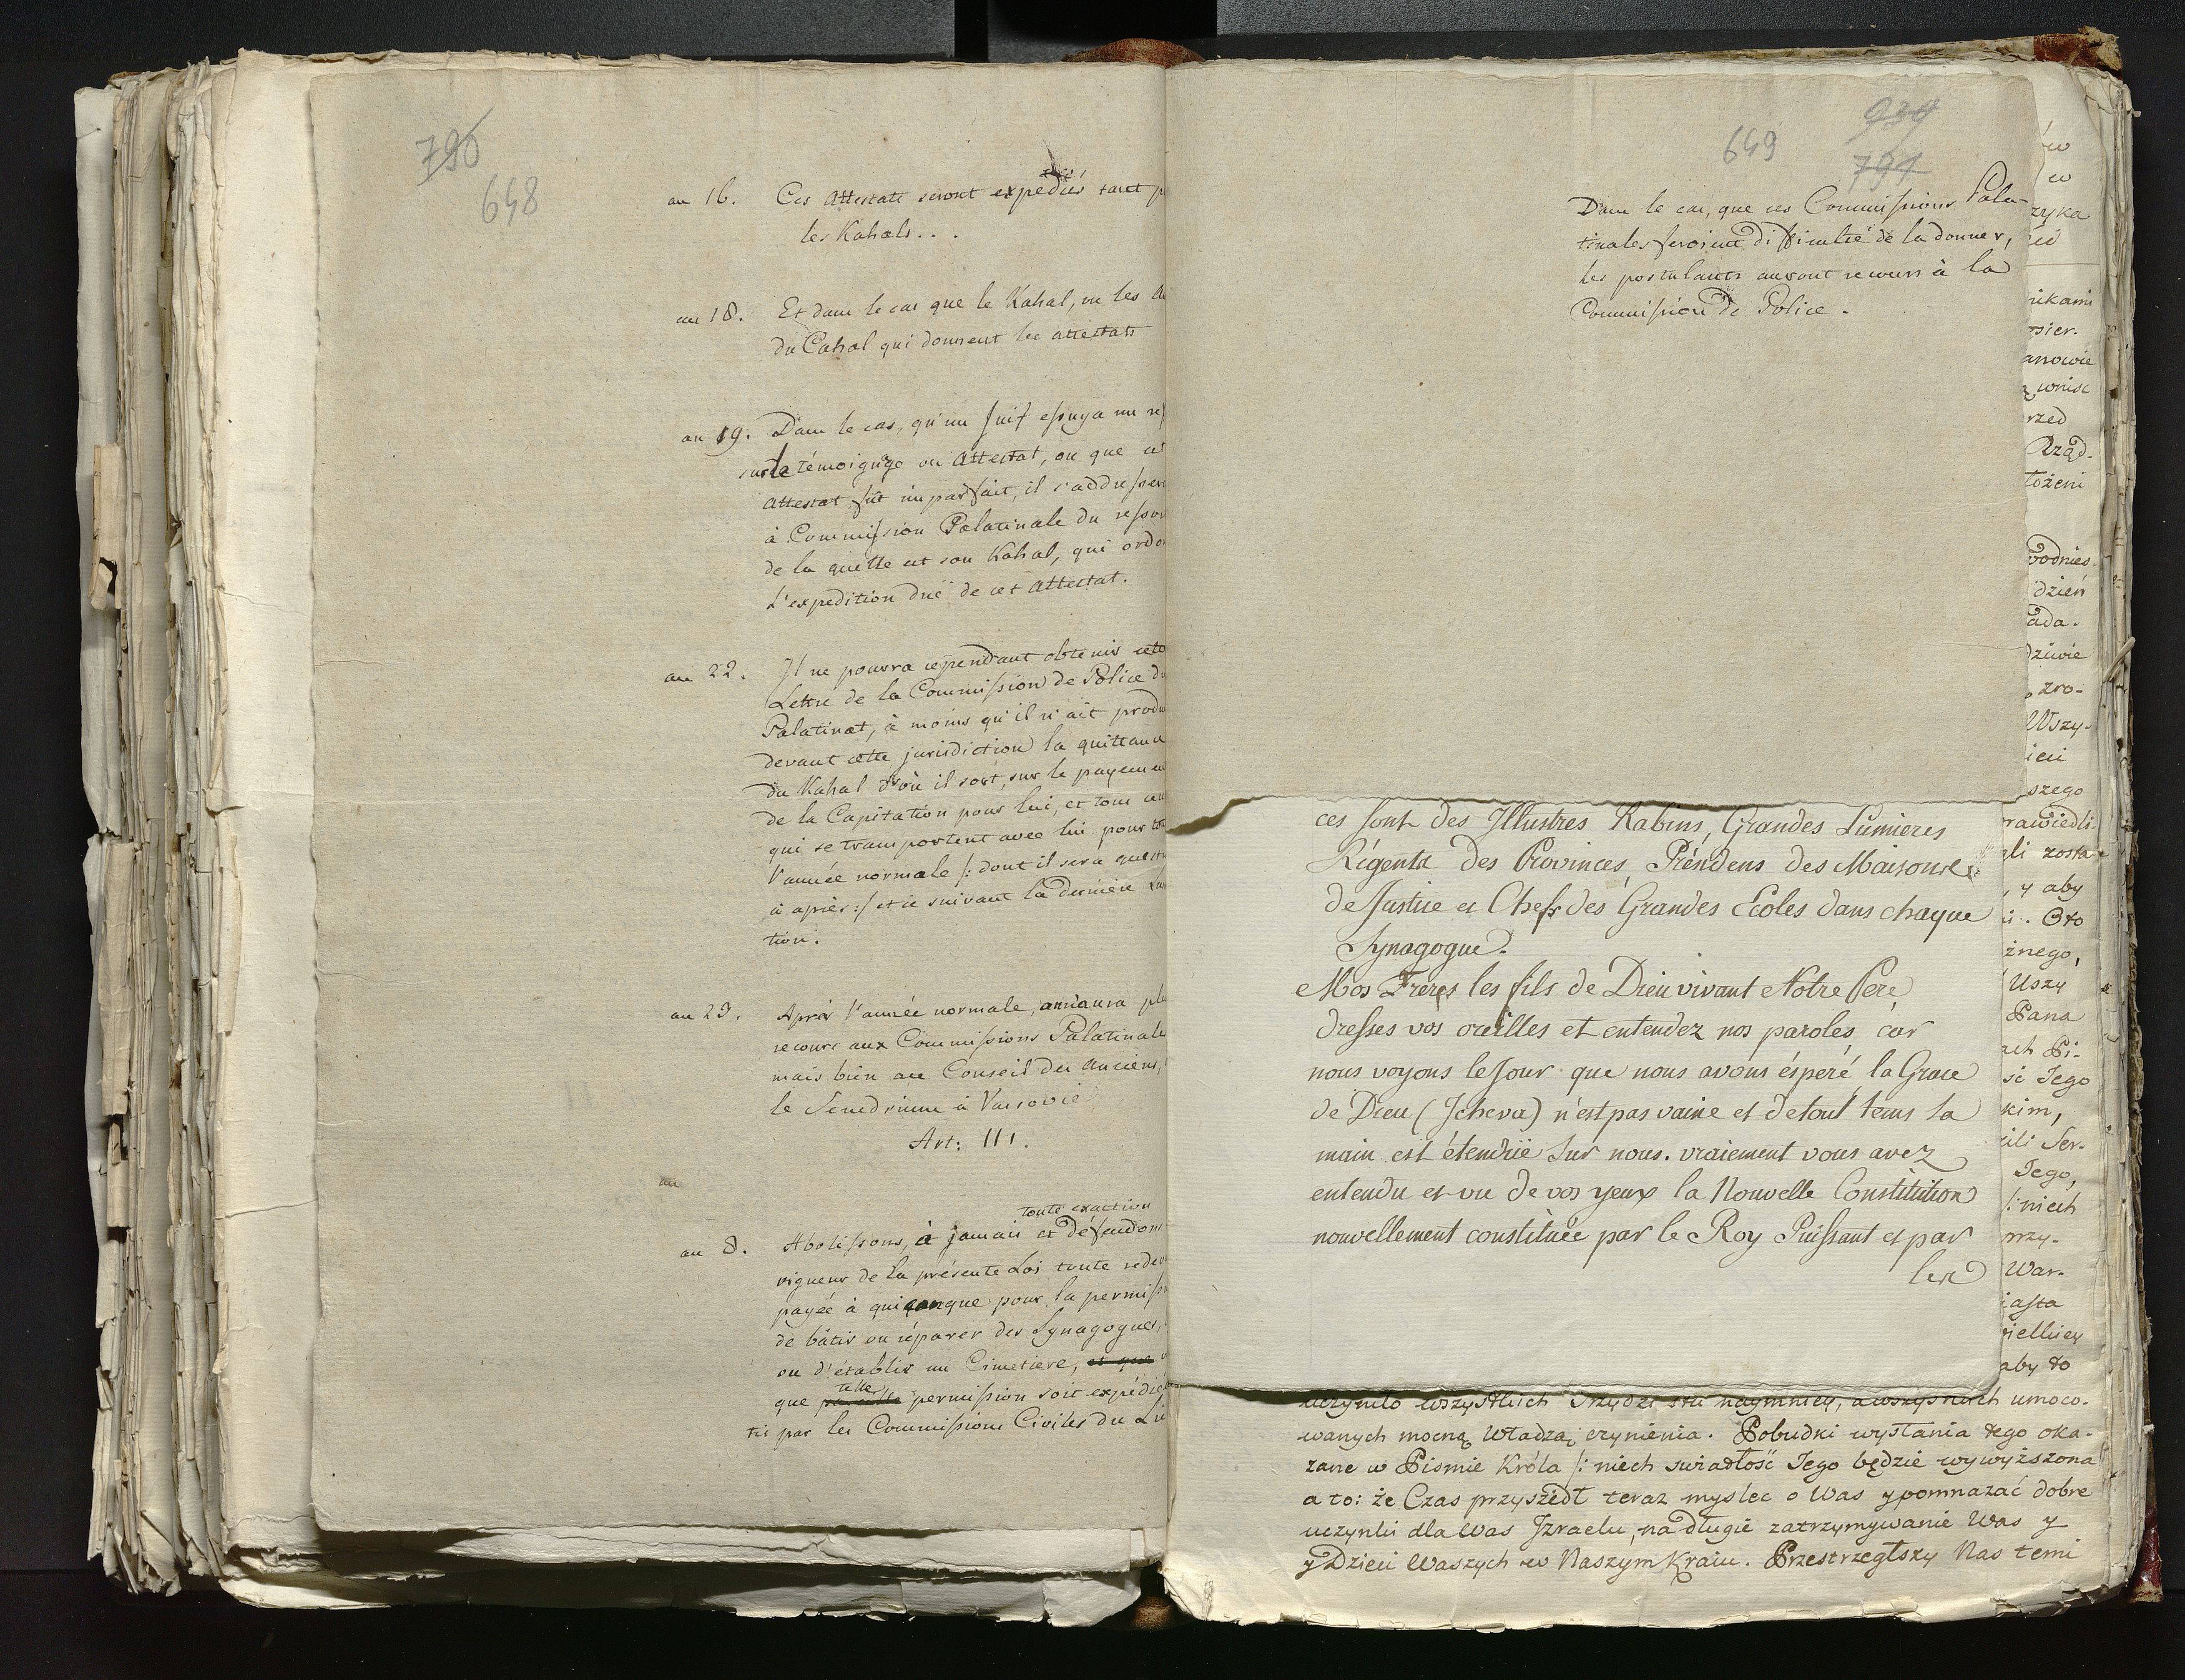 790
648
au 16. Ces Attestats seront expediés tant p
les Kahals...
au 18. Et dans le cas que le Kahal, ou les A
du Cahal qui donnent les attestats
au 19. Dans le cas, qu'un Juif essuya un ref
sur le témoignage ou Attestat, ou que cet
Attestat fût imparfait, il s'addressera
à Commission Palatinale du ressort
de la quelle est son Kahal, qui ordon
L'expedition düe de cet Attestat.
au 22. Il ne pourra cependant obtenir cette
Lettre de la Commission de Police du
Palatinat, à moins qu'il n'ait produ
devant cette jurisdiction la quittance
du Kahal d'où il sort, sur le payement
de la Capitation pour lui, et tous ceux
qui se transportent avec lui pour tou
l'année normale /: dont il sera questi
ci après :/ et ce suivant la derniere Lus
tion.
au 23. Après l'année normale, on n'aura plu
recours aux Commissions Palatinale
mais bien au Conseil des Anciens,
le Senedrium à Varsovie
Art: III.
au
toute exaction
au 8. Abolissons, à jamais et défendons
vigueur de la présente Loi toute redev
payée à quiconque pour la permissi
de bâtir ou réparer des Synagogues,
ou d'établir un Cimetiere, et que
telle
que permission soit expédiée
tis par les Commissions Civiles du Li
934
649
791
Dans le cas, que ces Commissions Pala-
tinales feroient difficulté de la donner,
les postulants auront recours à la
Commission de Police.
ces sont des Illustres Rabins, Grandes Lumieres
Régents des Provinces, Présidens des Maisons
de Justice et Chefs des Grandes Ecoles dans chaque
Synagogue.
Mos Freres les fils de Dieu vivant Notre Pere
dresses vos oreilles et entendez nos paroles, car
nous voyons le Jour que nous avons éspéré, la Grace
de Dieu (Jcheva) n'est pas vaine et de tout tems la
main est étendüe sur nous. vraiement vous avez
entendu et vu de vos yeux la Nouvelle Constitution
nouvellement constituée par le Roy Puissant et par
les
uczyniło wszystkich
wanych mocną Władzą czynienia. Pobudki wysłania tego oka-
zane w Pismie Króla /: niech swiatłość Jego będzie wywyższona
a to: że Czas przyszedł teraz myslec o Was y pomnazać dobre
uczynki dla Was Jzraelu, na długie zatrzymywanie Was y
y Dzieci Waszych w Naszym Kraiu. Przestrzegłszy Nas temi